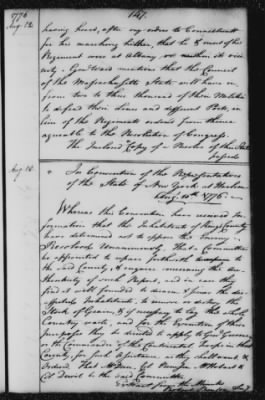 1776
Aug. 12
147.
having heard, after my orders to Connecticutt
for his marching hither, that he & most of his
Regiment were at Albany or within its vicin-
ity. Gen. Ward mentions that the Council
of the Massachusetts State will have in
from two to three thousand of their Militia
to defend their Lines and different Posts, in
lieu of the Regiments ordered from thence
agreable to the Resolution of Congress.
The Inclosed Copy of a Resolve of this State
Aug. 10.
In Convention of the Representatives
of the State of New York at Harlem
Aug. 10th 1776.
Whereas this Convention have received In-
formation that the Inhabitants of Kings County
have determined not to oppose the Enemy.
Resolved Unanimously, that a Committee
be appointed to repair forthwith
to the said County, & enquire concerning the au-
thenticity of such Report, and in case they
find it well founded to disarm & secure the dis-
affected Inhabitants, to remove or destroy the
Stock of Grain, & if necessary to lay the whole
Country waste, and for the Execution of these
purposes they be directed to apply to Gen.
or the Commander of the Continental Troops in that
County, for such Assistance as they shall want.
Ordered That
be the said Committee
Extract from the Minutes